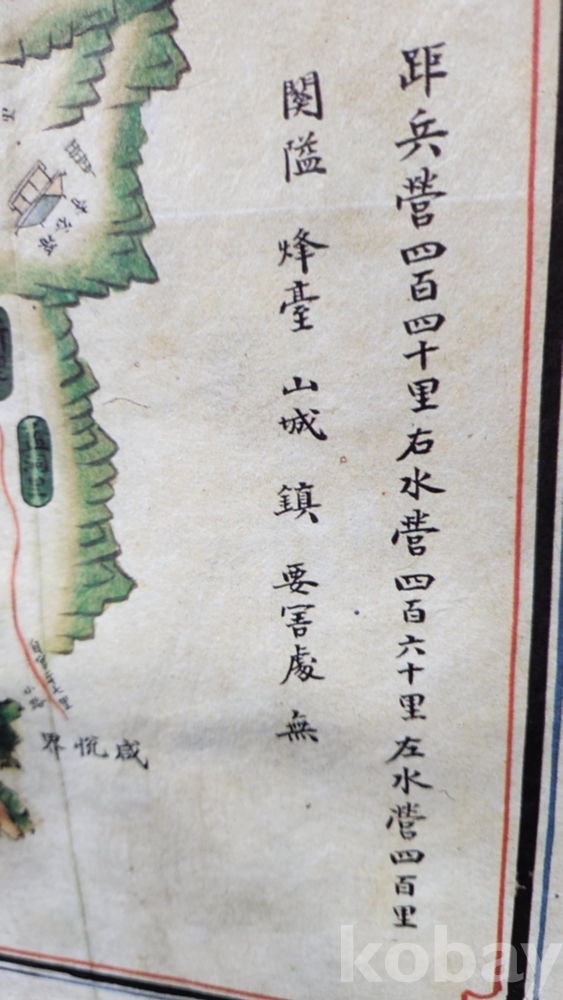 距兵營四百四十里右水營四百六十里左水營四百里
關隘 烽臺 山城 鎮 要害處 無
咸悅界
kobay